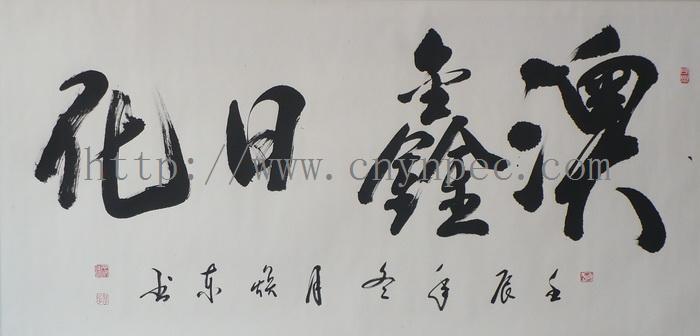 澳鑫日化
http://www.cnynpec.com
壬辰年冬月焕东书